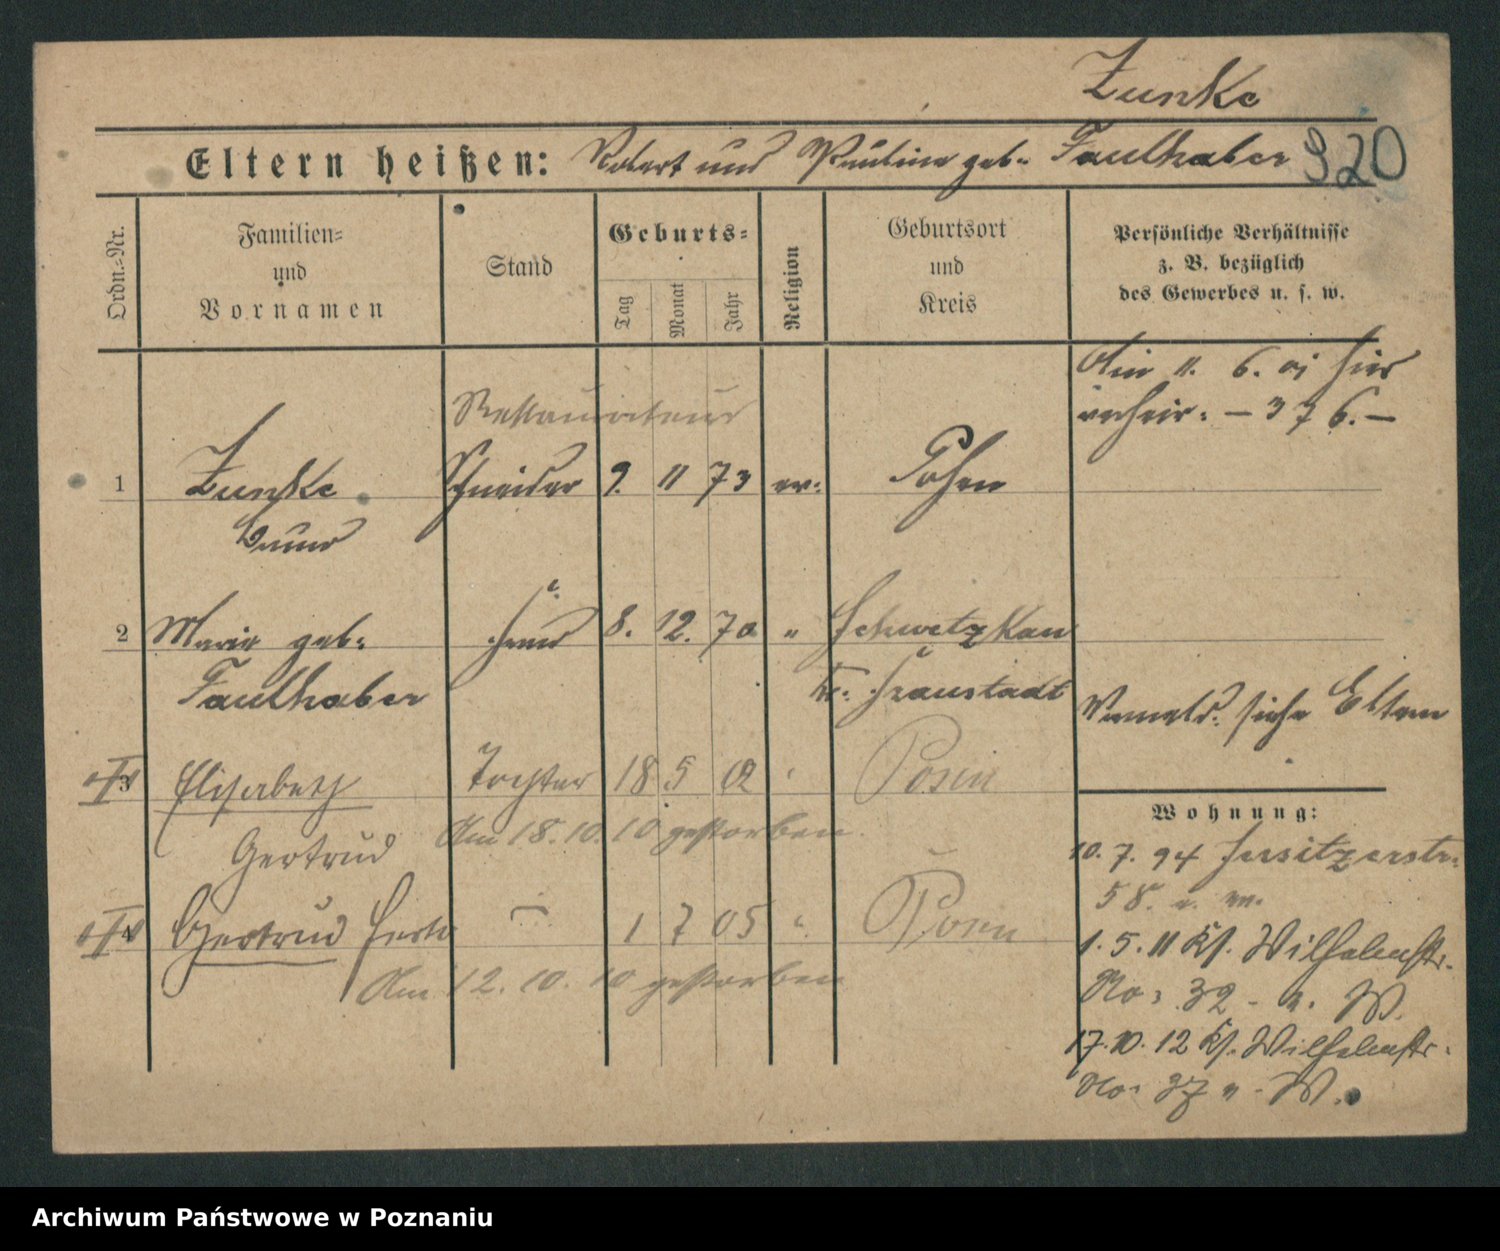 Zunke
Eltern heißen: Robert und Pauline geb. Faulhaber 920
Ordn.-Nr.
Familien-
und
Vornamen
Stand
Geburts-
Tag
Monat
Jahr
Religion
Geburtsort
und
Kreis
Persönliche Verhältnisse
z. B. bezüglich
des Gewerbes u. s. w.
11. 6. 01 hier
verheir. — 376. —
Restaurateur
1 Zunke Schneider 9. 11 73 ev. Posen
Bruno
2 Marie geb. Frau 8. 12. 70 " Schwetzkau
Faulhaber Kr. Fraustadt
siehe Eltern
3 Elisabeth Tochter 18 5 02 " Posen
Gertrud Am 18. 10. 10 gestorben.
4 Gertrud 1 7 05 " Posen
Am 12. 10. 10 gestorben
Wohnung:
10. 7. 94 Jersitzerstr.
58.
1. 5. 11 Kl. Wilhelmstr.
No. 32 - n. W.
17. 10. 12 Kl. Wilhelmstr.
No. 37 n. W.
Archiwum Państwowe w Poznaniu